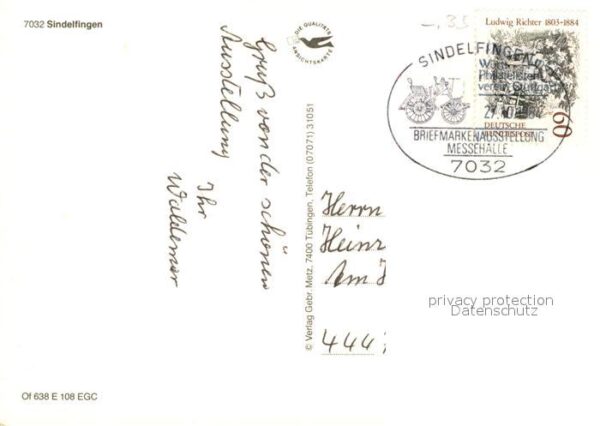 7032 Sindelfingen
Gruß von der schönen
Ausstellung
Ihr
Waldemar
Of 638 E 108 EGC
DIE QUALITÄTS
ANSICHTSKARTE
© Verlag Gebr. Metz, 7400 Tübingen, Telefon (07071) 31051
-,35
Ludwig Richter 1803-1884
60
DEUTSCHE
BUNDESPOST
SINDELFINGEN
Philatelisten
BRIEFMARKENAUSSTELLUNG
MESSEHALLE
7032
Herrn
Heinz
Am
444
privacy protection
Datenschutz